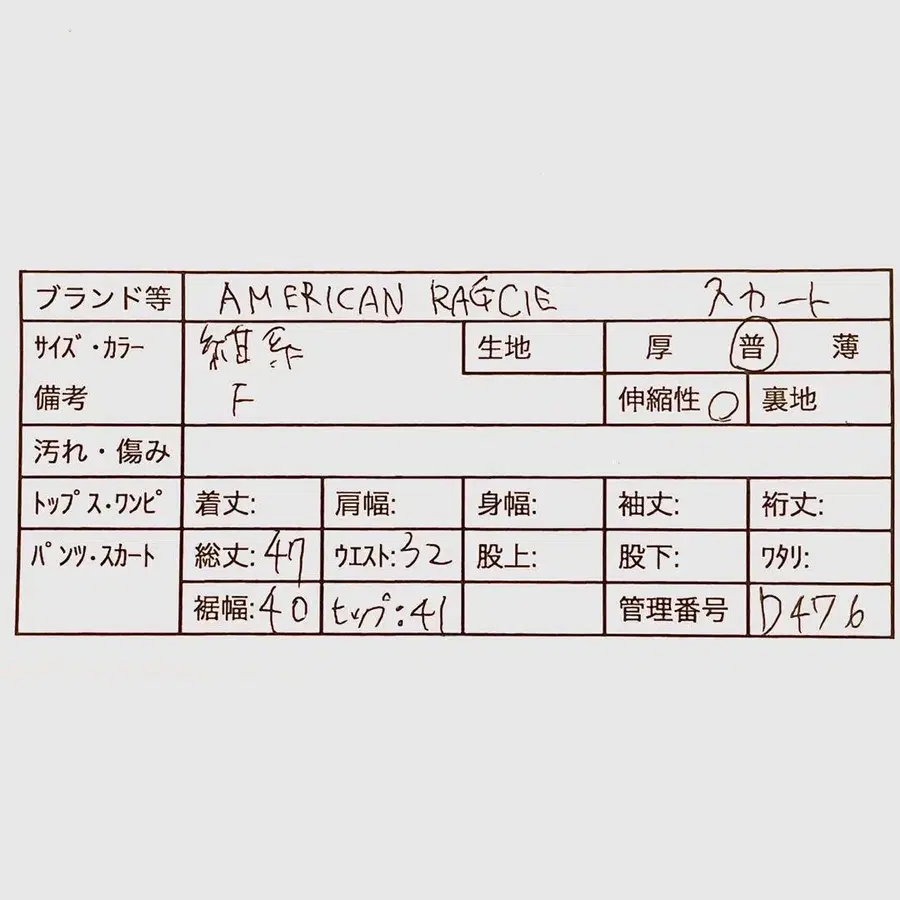 ブランド等 AMERICAN RAGCIE スカート
サイズ・カラー 紺系 生地 厚 普 薄
備考 F 伸縮性 ○ 裏地
汚れ・傷み
トップス・ワンピ 着丈: 肩幅: 身幅: 袖丈: 裄丈:
パンツ・スカート 総丈:47 ウエスト:32 股上: 股下: ワタリ:
裾幅:40 ヒップ:41 管理番号 D476